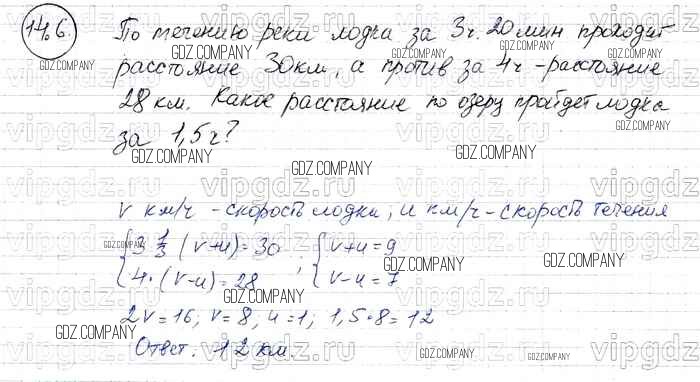 14.6. По течению реки лодка за 3ч. 20мин проходит
расстояние 30км, а против за 4ч - расстояние
28 км. Какое расстояние по озеру пройдет лодка
за 1,5ч?
v км/ч - скорость лодки, u км/ч - скорость течения
{3 1/3 (v+u)=30 ; {v+u=9
{4·(v-u)=28 {v-u=7
2v=16; v=8, u=1; 1,5·8=12
Ответ: 12 км.
vipgdz.ru
GDZ.COMPANY